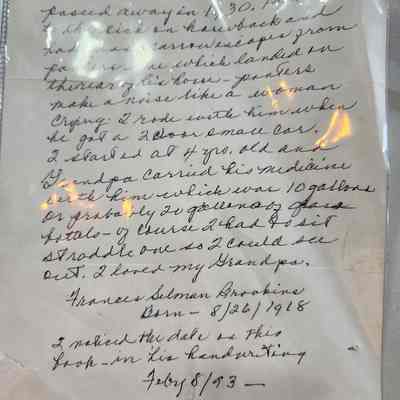 passed away in 1930. He
the sick on horseback and
had many narrow escapes from
panthers one which landed on
the rear of his horse - panters
make a noise like a woman
crying. I rode with him when
he got a 2 door small car.
I started at 4 yrs. old and
Grandpa carried his medicine
with him which was 10 gallons
or probably 20 gallons of glass
bottels - of course I had to sit
straddle one so I could see
out. I loved my Grandpa.
Frances Selman Brookins
Born - 8/26/1918
I noticed the date as this
book - in his handwriting
Feby 8/93 -